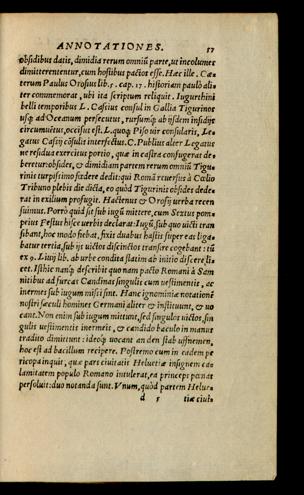 ANNOTATIONES. 57
obsidibus datis, dimidia rerum omniũ parte, ut incolumes
dimitterentur, cum hostibus pactos esse. Hæc ille. Cæ-
terum Paulus Orosius lib. 5. cap. 15. historiam paulò ali-
ter commemorat, ubi ita scriptum reliquit. Iugurthini
belli temporibus L. Cassius consul in Gallia Tigurinos
usq; ad Oceanum persecutus, rursumq; ab ijsdem insidijs
circumuentus, occisus est. L. quoq; Piso uir consularis, Le-
gatus Cassij cõsulis interfectus. C. Publius alter Legatus
ne residua exercitus portio, quæ in castra confugerat de-
leretur: obsides, & dimidiam partem rerum omniũ Tigu-
rinis turpissimo fœdere dedit: qui Romã reuersus à Cœlio
Tribuno plebis die dicta, eo quòd Tigurinis obsides dede-
rat in exilium profugit. Hactenus & Orosij uerba recen
suimus. Porrò quid sit sub iugũ mittere, cum Sextus pom-
peius Festus hisce uerbis declarat: Iugũ, sub quo uicti tran
sibant, hoc modo fiebat, fixis duabus hastis super eas liga-
batur tertia, sub ijs uictos discinctos transire cogebant: tũ
ex 9. Liuij lib. ab urbe condita statim ab initio discere li-
cet. Isthic nanq; describit quo nam pacto Romani à Sam
nitibus ad furcas Caudinas singulis cum uestimentis, ac
inermes sub iugum missi sint. Hanc ignominiæ notationẽ
nostri sæculi homines Germani aliter & instituunt, & uo
cant. Non enim sub iugum mittunt, sed singulos uictos, sin
gulis uestimentis inermeis, & candido baculo in manus
tradito dimittunt: ideoq; uocant an den stab uffnemen,
hoc est ad bacillum recipere. Postremo cum in eadem pe
ricopa inquit, quæ pars ciuitatis Heluetiæ insignem ca-
lamitatem populo Romano intulerat, ea princeps pœnas
persoluit: duo notanda sunt. Vnum, quòd partem Helue-
d 5 tiæ ciui-